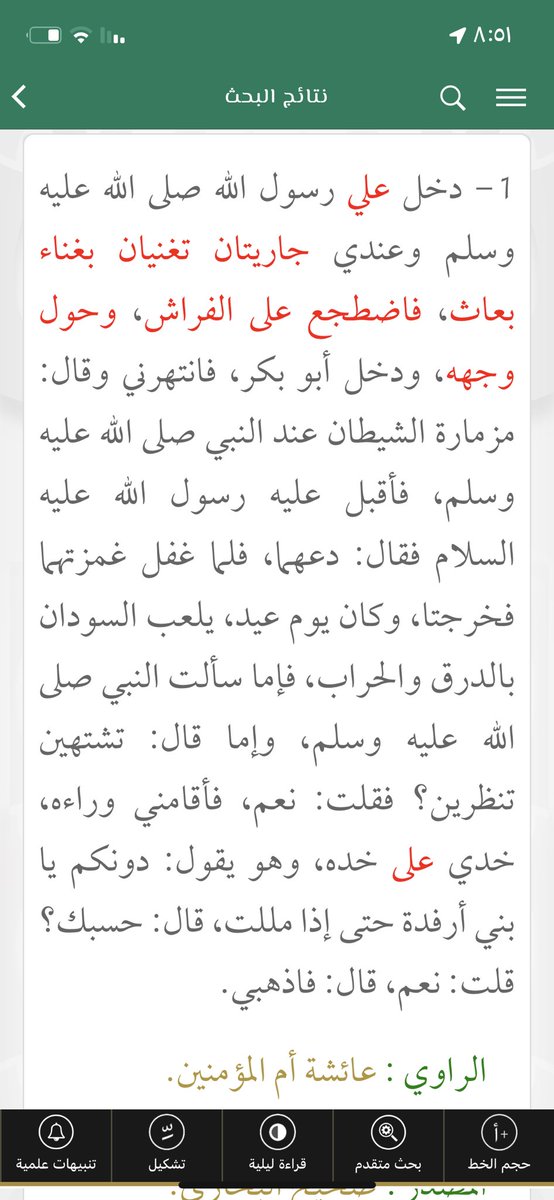 ٨:٥١
نتائج البحث
1 - دخل علي رسول الله صلى الله عليه
وسلم وعندي جاريتان تغنيان بغناء
بعاث، فاضطجع على الفراش، وحول
وجهه، ودخل أبو بكر، فانتهرني وقال:
مزمارة الشيطان عند النبي صلى الله عليه
وسلم، فأقبل عليه رسول الله عليه
السلام فقال: دعهما، فلما غفل غمزتهما
فخرجتا، وكان يوم عيد، يلعب السودان
بالدرق والحراب، فإما سألت النبي صلى
الله عليه وسلم، وإما قال: تشتهين
تنظرين؟ فقلت: نعم، فأقامني وراءه،
خدي على خده، وهو يقول: دونكم يا
بني أرفدة حتى إذا مللت، قال: حسبك؟
قلت: نعم، قال: فاذهبي.
الراوي : عائشة أم المؤمنين.
حجم الخط
بحث متقدم
قراءة ليلية
تشكيل
تنبيهات علمية